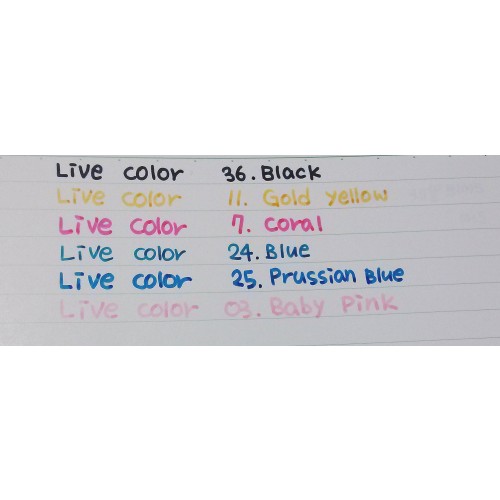 Live color 36. Black
Live color 11. Gold yellow
Live color 7. Coral
Live color 24. Blue
Live color 25. Prussian Blue
Live color 03. Baby Pink